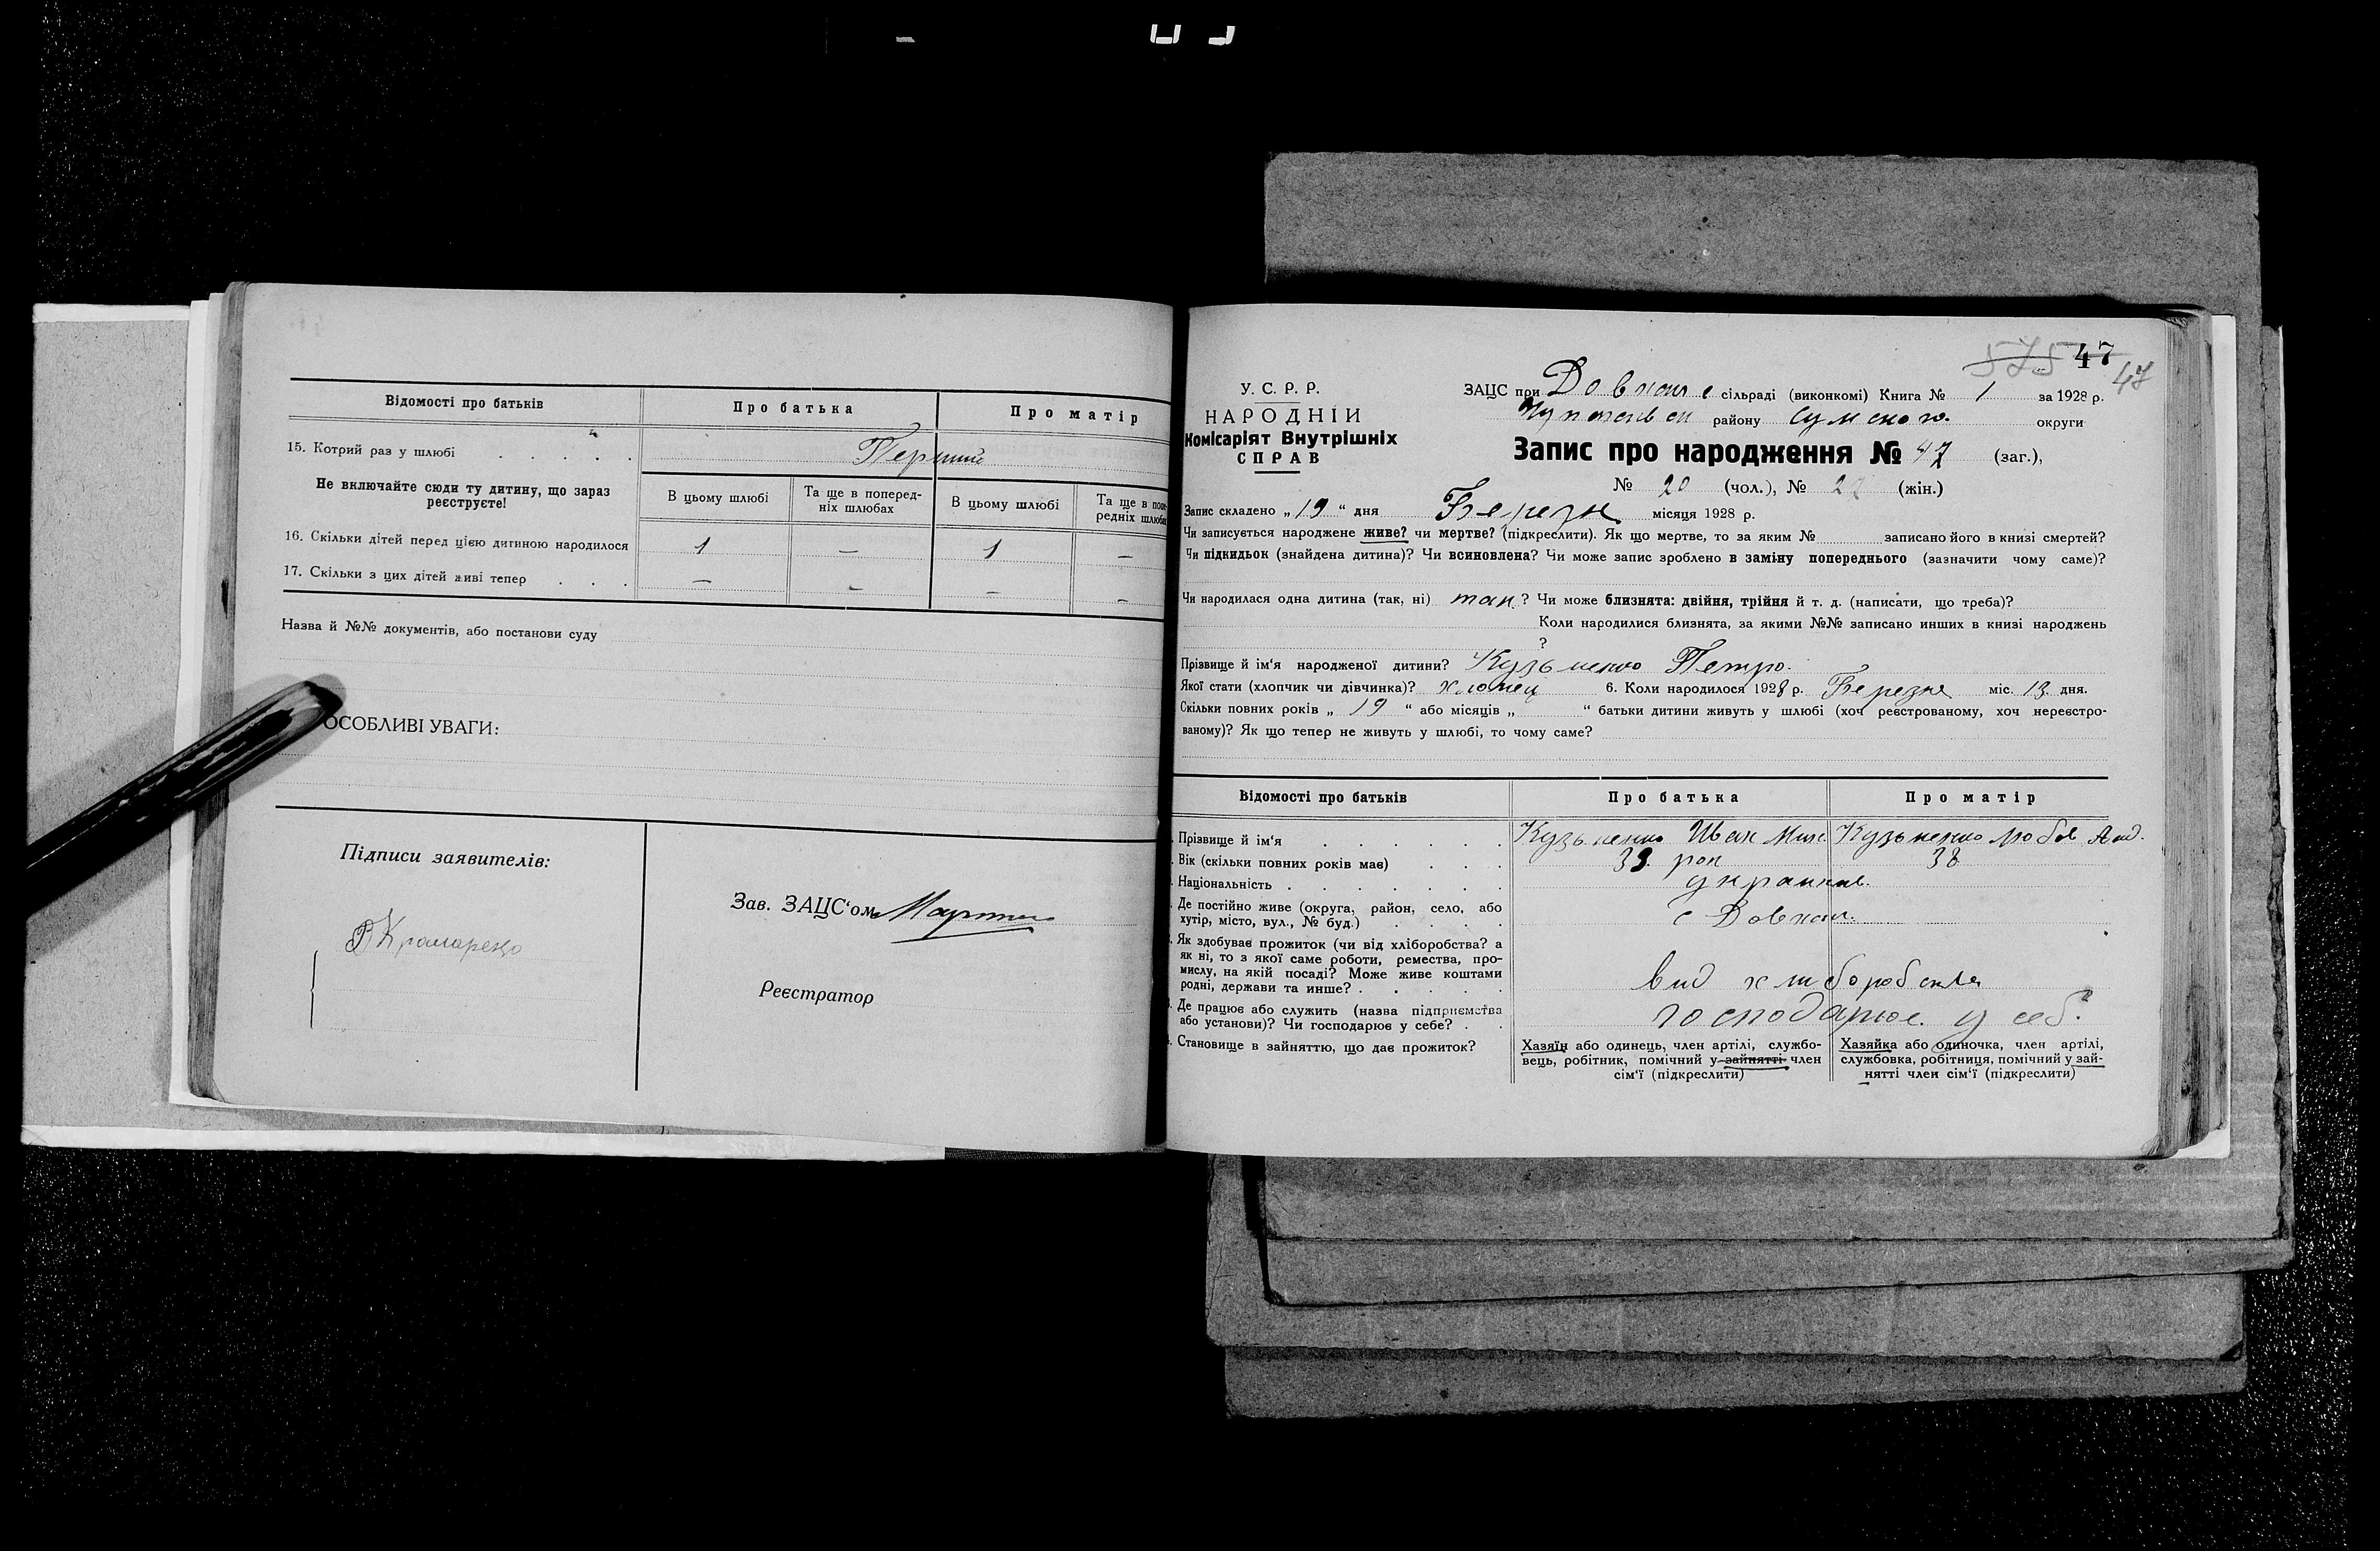 Відомості про батьків
Про батька
Про матір
15. Котрий раз у шлюбі
Перший
Не включайте сюди ту дитину, що зараз реєструєте!
В цьому шлюбі
Та ще в поперед-
ніх шлюбах
В цьому шлюбі
Та ще в попе-
редніх шлюбах
16. Скільки дітей перед цією дитиною народилося 1 — 1 —
17. Скільки з цих дітей живі тепер — — — —
Назва й №№ документів, або постанови суду
ОСОБЛИВІ УВАГИ:
Підписи заявителів:
Зав. ЗАЦС‘ом
В Крамаренко
Реєстратор
575 47
47
У. С. Р. Р.
НАРОДНІЙ
Комісаріят Внутрішніх
СПРАВ
ЗАЦС при сільраді (виконкомі) Книга № 1 за 1928 р.
району Сумского округи
Запис про народження № 47 (заг.),
№ 20 (чол.), № 27 (жін.)
Запис складено „ 19 “ дня Березня місяця 1928 р.
Чи записується народжене живе? чи мертве? (підкреслити). Як що мертве, то за яким № записано його в книзі смертей?
Чи підкидьок (знайдена дитина)? Чи всиновлена? Чи може запис зроблено в заміну попереднього (зазначити чому саме)?
Чи народилася одна дитина (так, ні) так ? Чи може близнята: двійня, трійня й т. д. (написати, що треба)?
Коли народилися близнята, за якими №№ записано инших в книзі народжень
?
Прізвище й ім‘я народженої дитини? Кузьменко Петро.
Якої стати (хлопчик чи дівчинка)? хлопец 6. Коли народилося 1928 р. Березня міс. 13 дня.
Скільки повних років „ 19 “ або місяців „ “ батьки дитини живуть у шлюбі (хоч реєстрованому, хоч нереєстро-
ваному)? Як що тепер не живуть у шлюбі, то чому саме?
Відомості про батьків
Про батька
Про матір
Прізвище й ім‘я
Кузьменко Иван Мих.
Кузьменко Любов Анд.
Вік (скільки повних років має) 39 рок 38
Національність
украинс.
Де постійно живе (округа, район, село, або
хутір, місто, вул., № буд.)
Як здобуває прожиток (чи від хліборобства? а
як ні, то з якої саме роботи, ремества, про-
мислу, на якій посаді? Може живе коштами
родні, держави та инше?
вид хлиборобства
Де працює або служить (назва підприємства
або установи)? Чи господарює у себе?
господарює у себ.
Становище в зайняттю, що дає прожиток?
Хазяїн або одинець, член артілі, службо-
вець, робітник, помічний у зайнятті член
сім‘ї (підкреслити)
Хазяйка або одиночка, член артілі,
службовка, робітниця, помічний у зай-
нятті член сім‘ї (підкреслити)